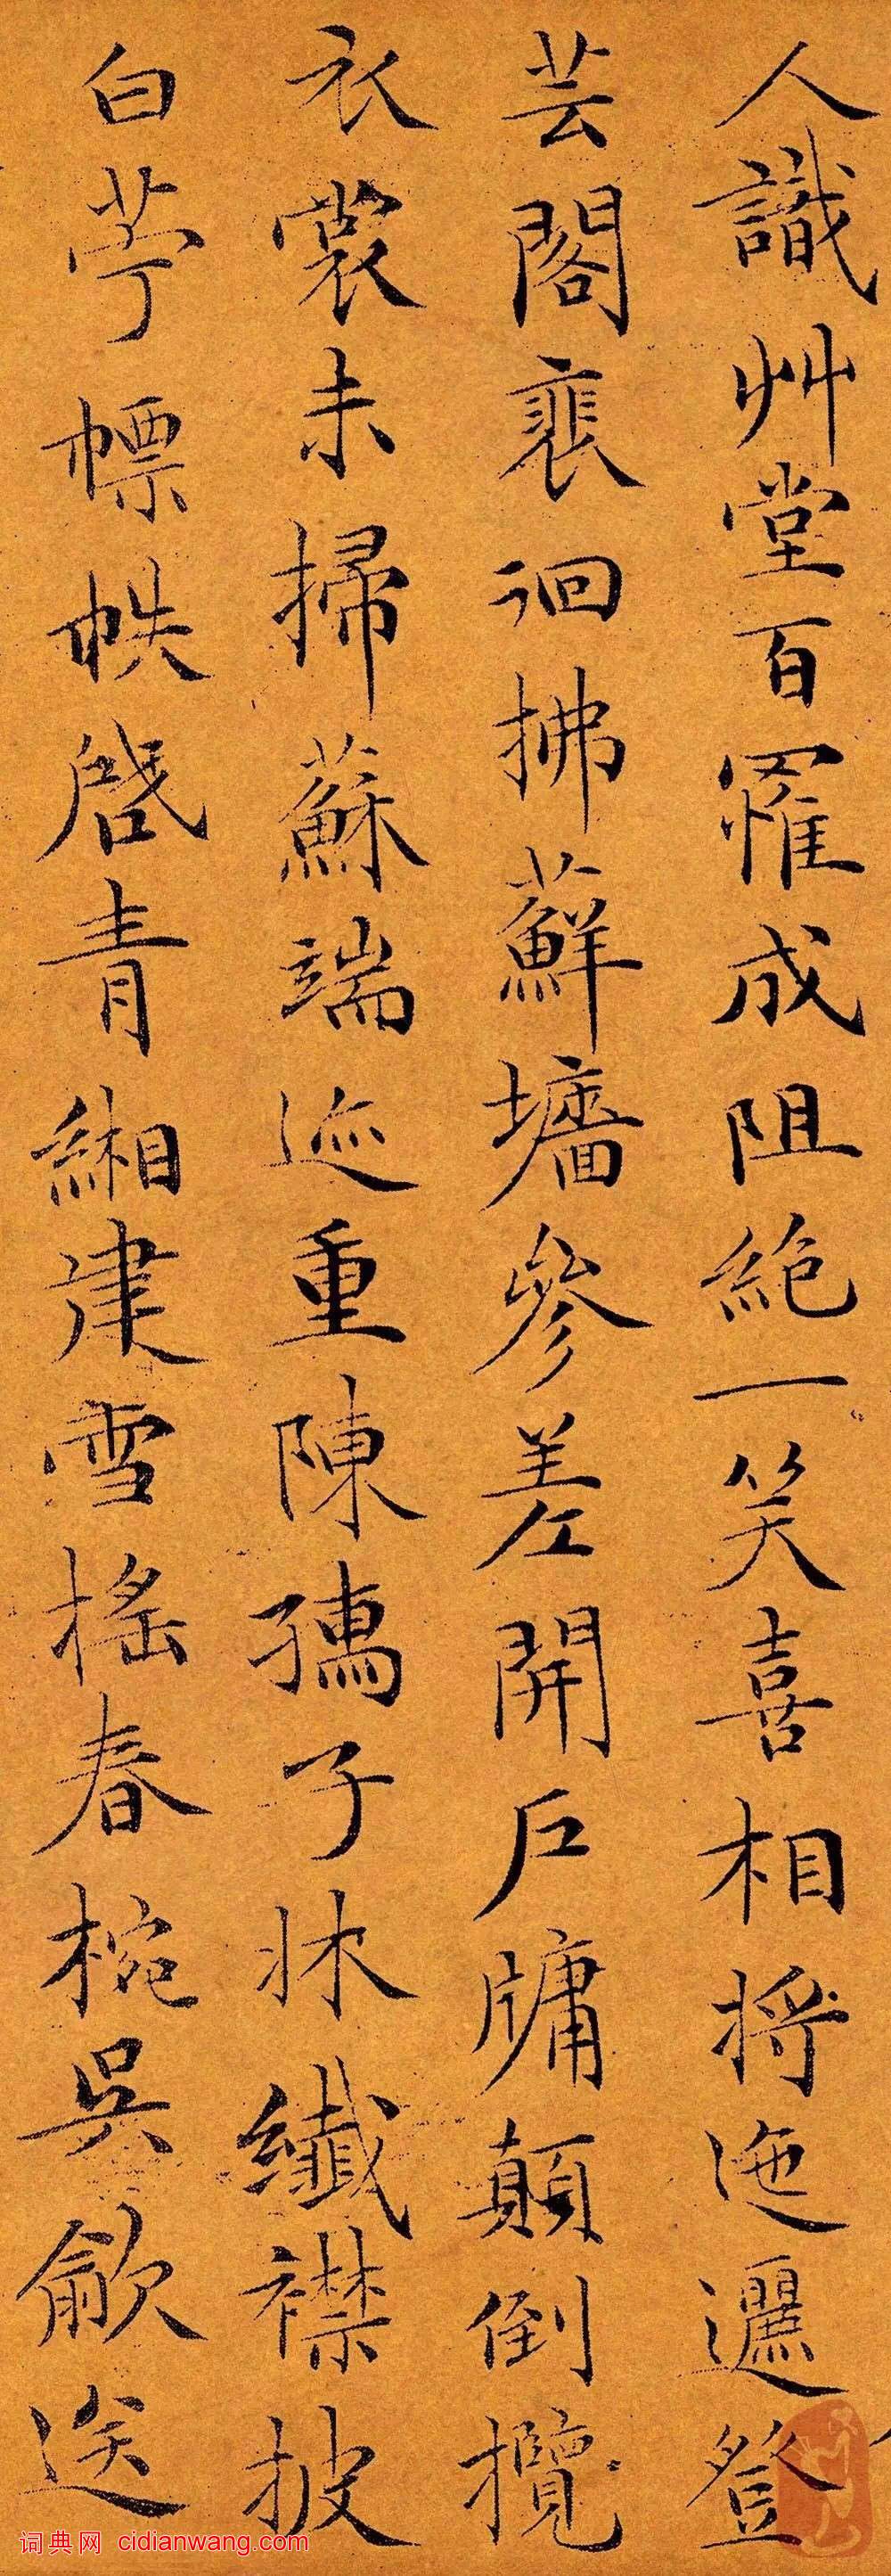 人識艸堂百罹成阻絶一笑喜相將迤邐登
芸閣裴徊拂蘚墻參差開戶牖顛倒攬
衣裳未掃蘇端迹重陳孺子牀纖襟披
白苧幖帙啓青緗建雪搖春椀吴歈送
词典网 cidianwang.com